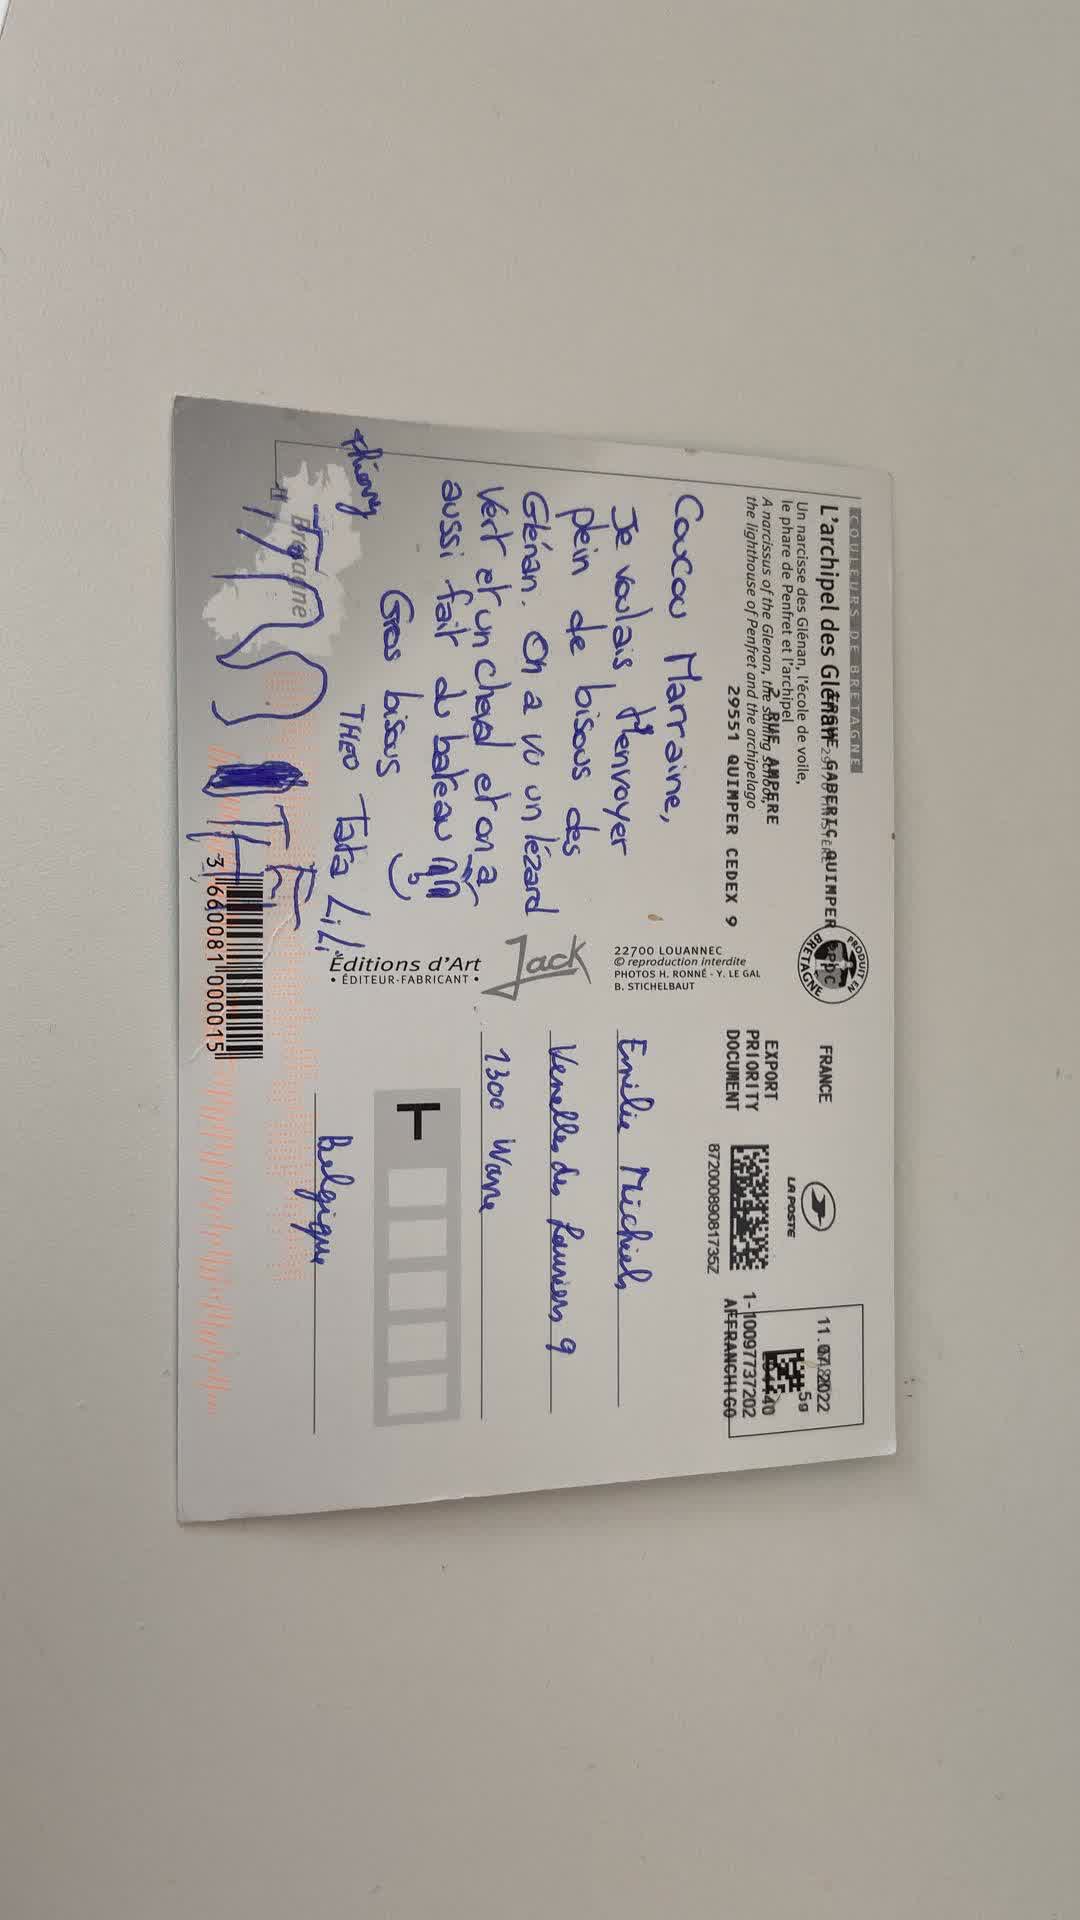 COULEURS DE BRETAGNE
L'archipel des Glénan
Un narcisse des Glénan, l'école de voile,
le phare de Penfret et l'archipel
A narcissus of the Glenan, the sailing school,
the lighthouse of Penfret and the archipelago
GABERIC QUIMPER
2 RUE AMPERE
29551 QUIMPER CEDEX 9
PRODUIT EN BRETAGNE
PPDC
FRANCE
EXPORT
PRIORITY
DOCUMENT
LA POSTE
87200089081735Z
11.07.2022
5g
1-10097737202
AFFRANCHIGO
Coucou Marraine,
Je voulais t'envoyer
plein de bisous des
Glénan. On a vu un lézard
vert et un cheval et on a
aussi fait du bateau
Gros bisous
Thierry
THEO Tata LiLi
Bretagne
22700 LOUANNEC
© reproduction interdite
PHOTOS H. RONNÉ - Y. LE GAL
B. STICHELBAUT
Jack
Editions d'Art
• ÉDITEUR-FABRICANT •
3 660081 000015
Emilie Michiels
Venelle des Lauriers 9
1300 Wavre
Belgique